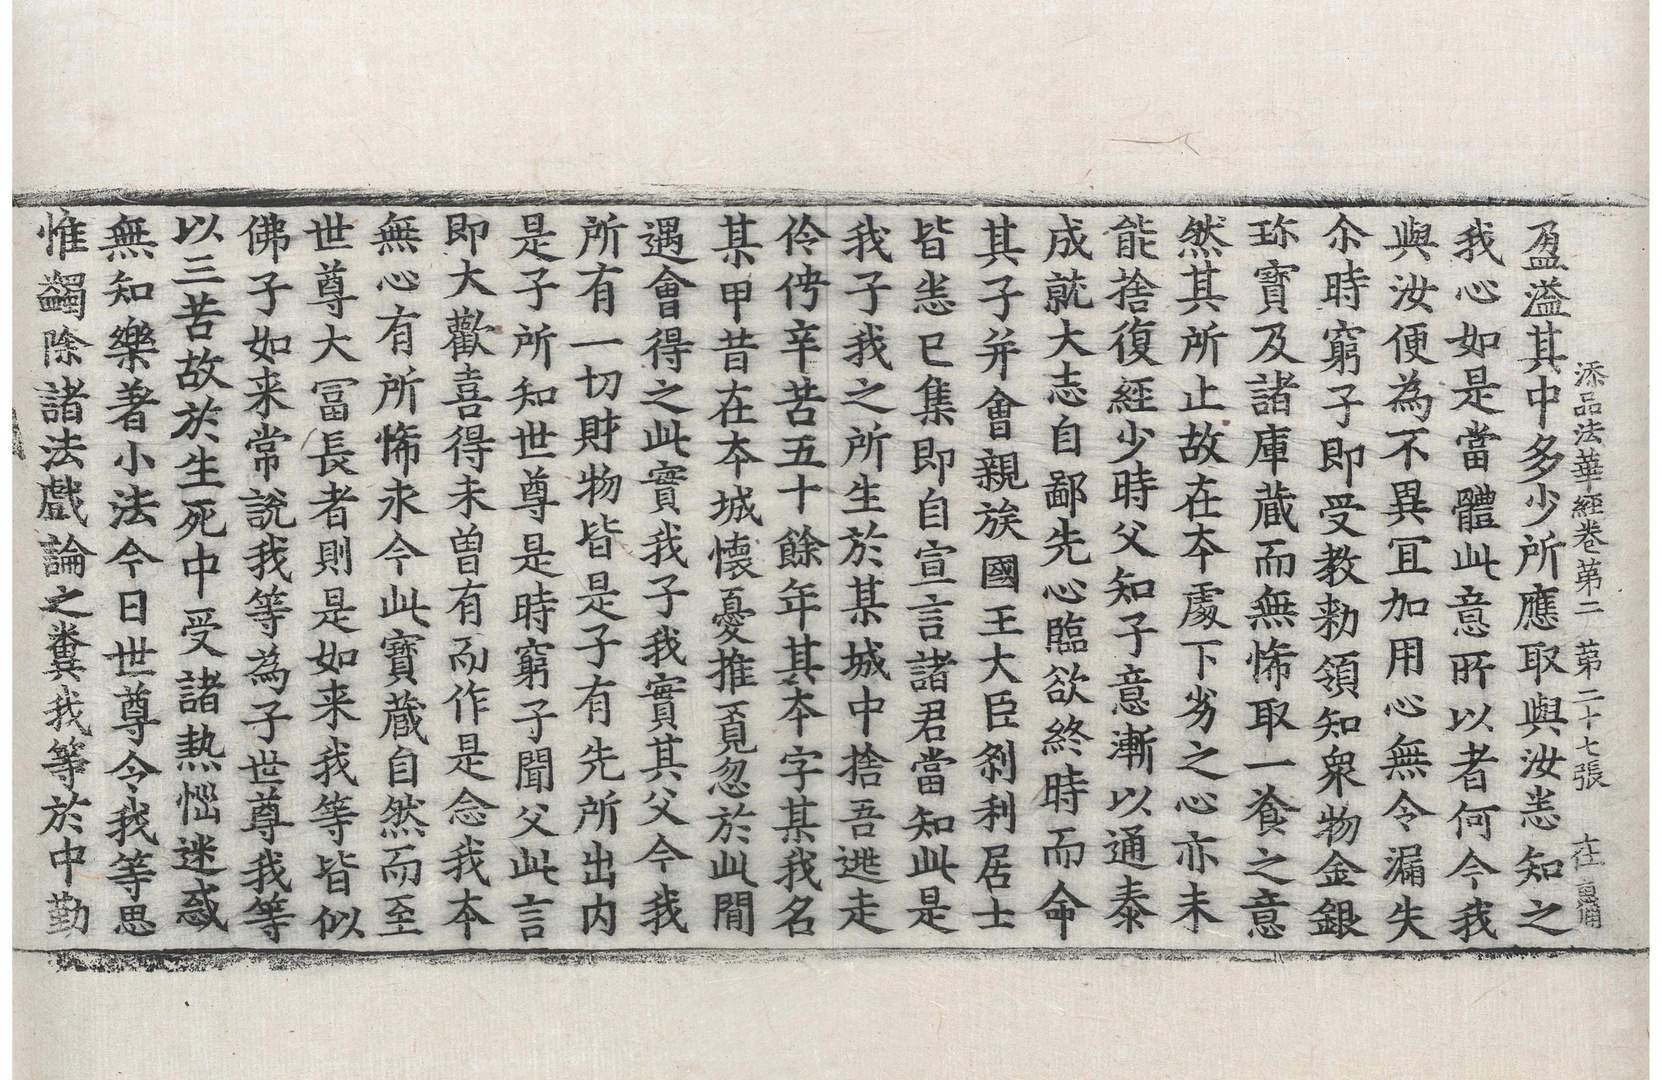 添品法華經卷第二 第二十七張 在
盈溢其中多少所應取與汝悉知之
我心如是當體此意所以者何今我
與汝便為不異冝加用心無令漏失
尒時窮子即受教勑領知衆物金銀
珎寶及諸庫蔵而無悕取一飡之意
然其所止故在夲處下劣之心亦未
能捨復經少時父知子意漸以通泰
成就大志自鄙先心臨欲終時而命
其子并會親族國王大臣刹利居士
皆悉已集即自宣言諸君當知此是
我子我之所生於某城中捨吾逃走
伶俜辛苦五十餘年其夲字某我名
某甲昔在夲城懷憂推覔忽於此間
遇會得之此實我子我實其父今我
所有一切財物皆是子有先所出内
是子所知世尊是時窮子聞父此言
即大歡喜得未曽有而作是念我夲
無心有所悕求今此寶蔵自然而至
世尊大冨長者則是如来我等皆似
佛子如来常說我等為子世尊我等
以三苦故於生死中受諸熱惱迷惑
無知樂著小法今日世尊令我等思
惟蠲除諸法戲論之糞我等於中勤